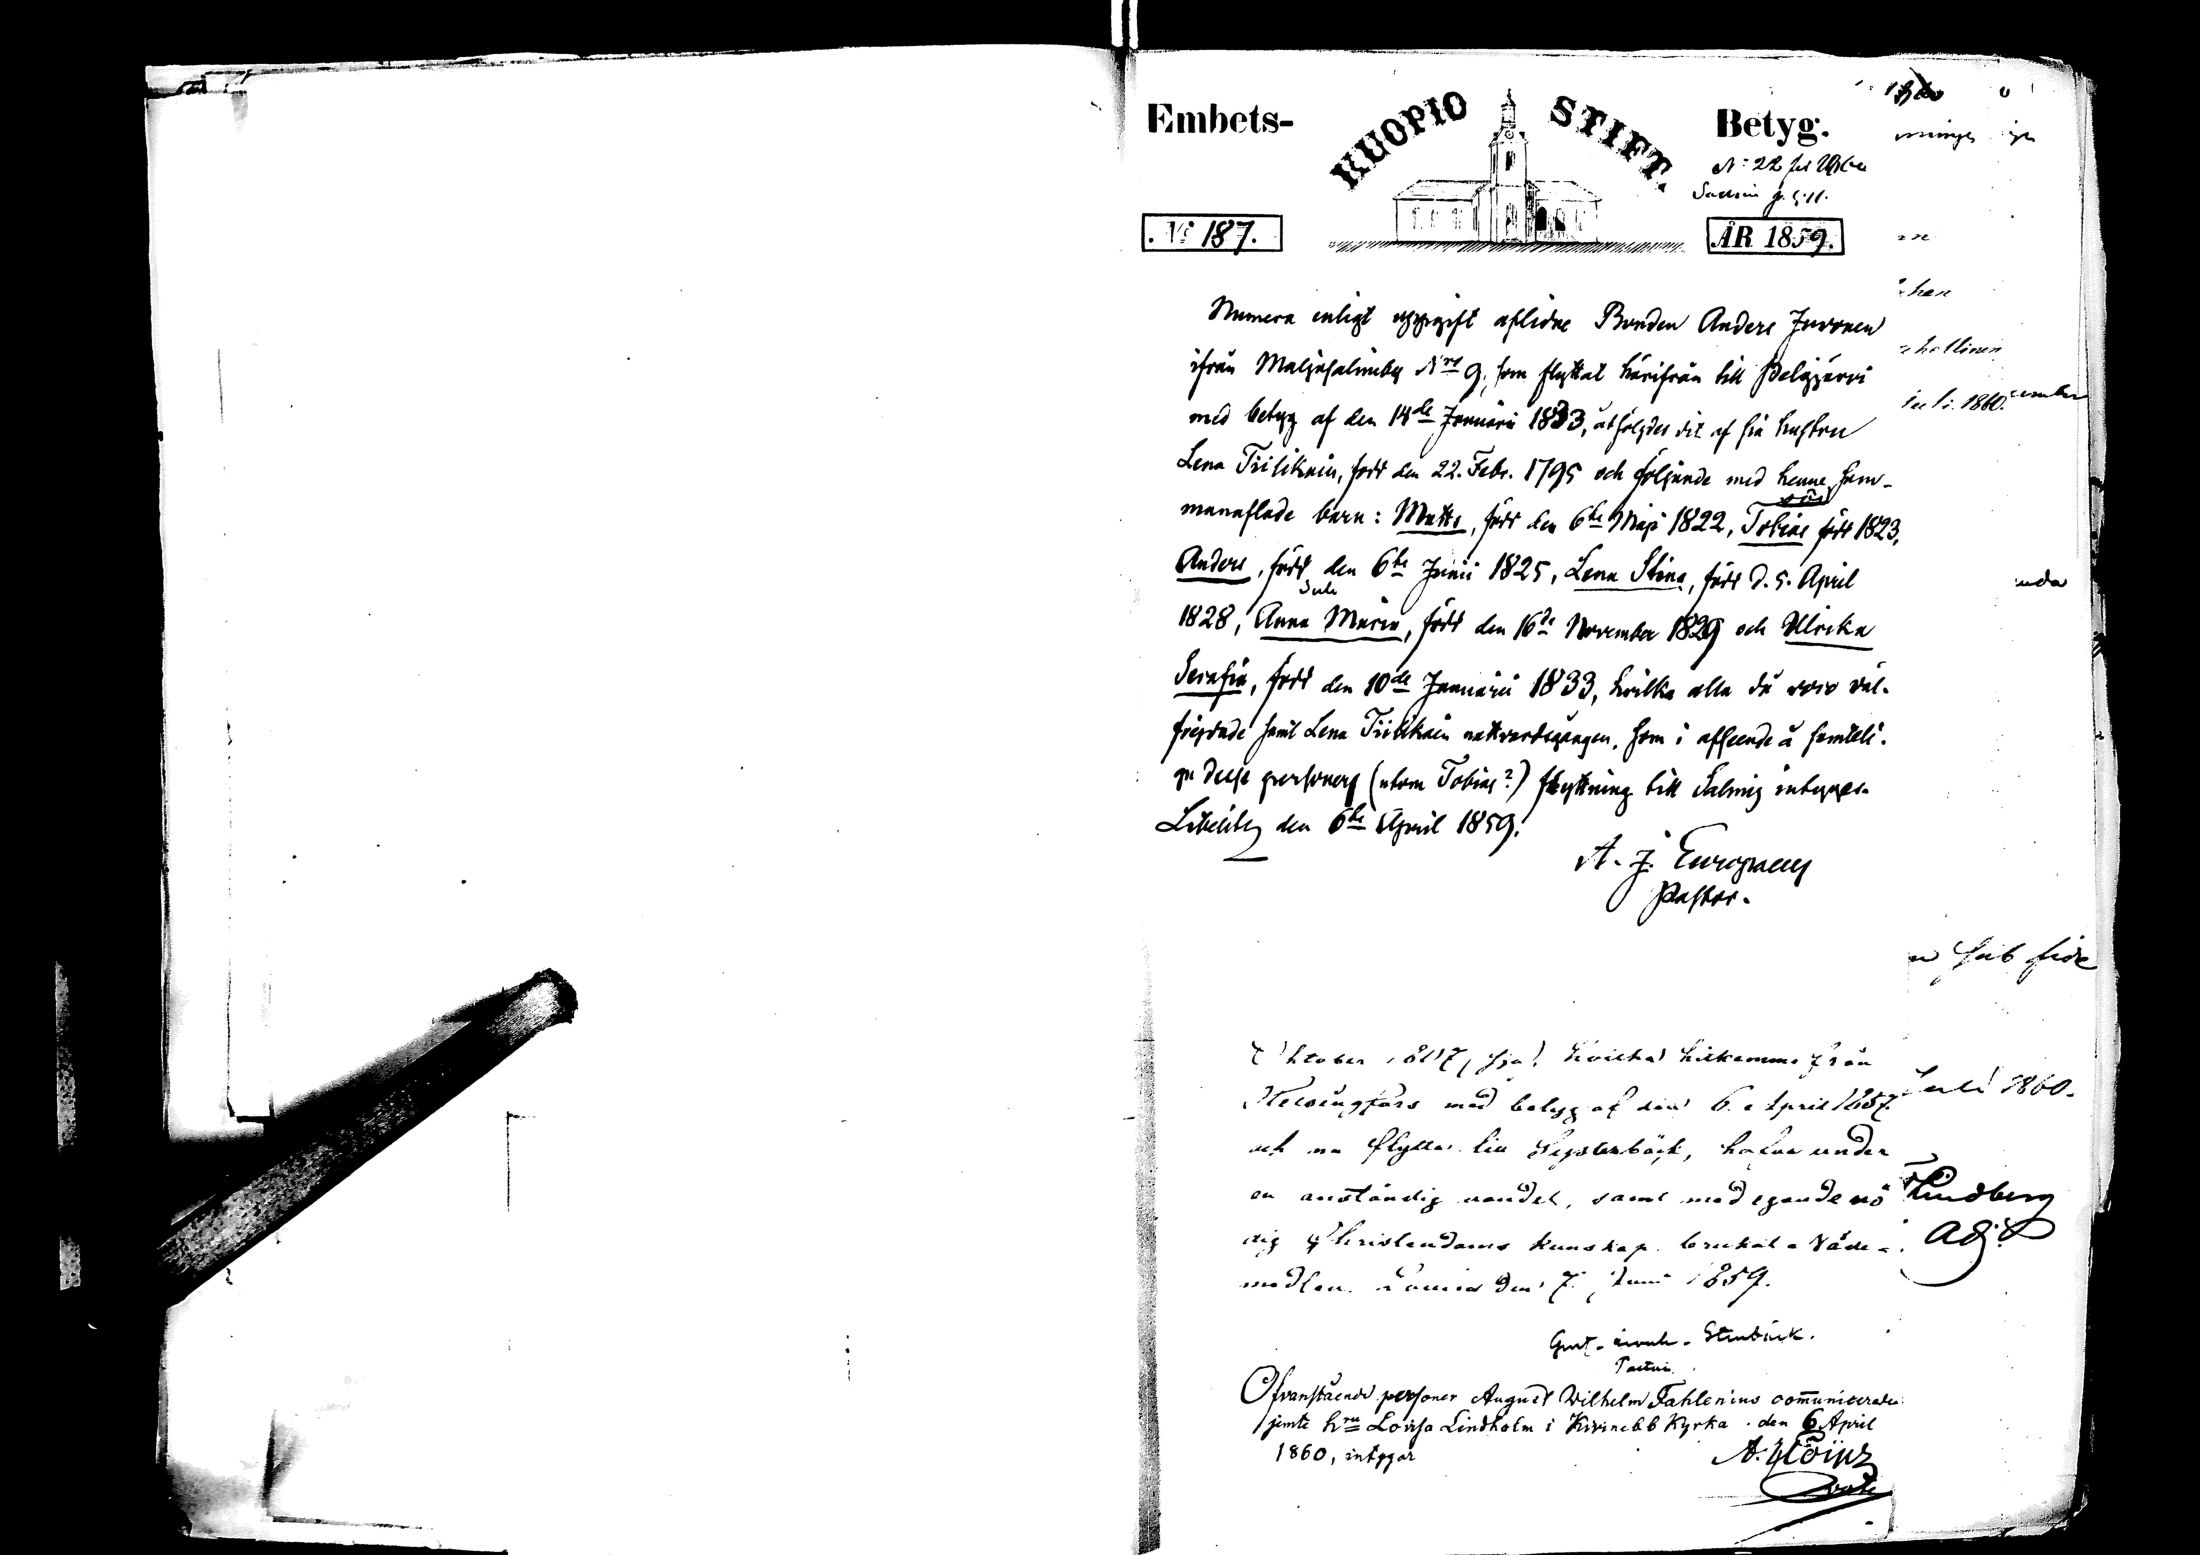 Embets-
KUOPIO STIFT.
Betyg.
No 22
No 187.
ÅR 1859.
Numera enligt uppgift aflidne Bonden Anders Juvonen
ifrån Maljasalmiby Nro 9, som flyttat härifrån till Pelgjärvi
med betyg af den 14de Januarii 1833, åtföljdes dit af sin hustru
Lena Tiilikain, född den 22. Febr. 1795 och följande med henne sam-
manaflade barn: Matts, född den 6te Maji 1822, Tobias född 1823,
Anders, född den 6te Junii 1825, Lena Stina, född d. 5. April
Juli
1828, Anna Maria, född den 16de November 1829 och Ulrika
Serafia, född den 10de Januarii 1833, hvilka alla då voro väl-
frejdade samt Lena Tiilikain nattvardsgången, som i afseende å samteli-
ge desse personers (utom Tobias?) flyttning till Salmis intygas.
Libelits den 6te April 1859.
A. J. Europaeus
Pastor.
hallinen
Juli 1860.
cember
sub fide
Oktober 1817, hvilka hitkomme från
Helsingfors med betyg af den 6. April 1857.
och nu flytta till Systerbäck, hafva under
en anständig vandel, samt med egande nö
dig Christendoms kunskap brukat Nåde-
medlen. Lovisa den 7. Juni 1859.
Stenbäck.
Pastor.
Juli 1860.
Lindberg
Adj.
Ofvanstående personer August Wilhelm Fahlenius communicerade
jemte hru Lovisa Lindholm i Kivinebb Kyrka den 6 April
1860, intygar